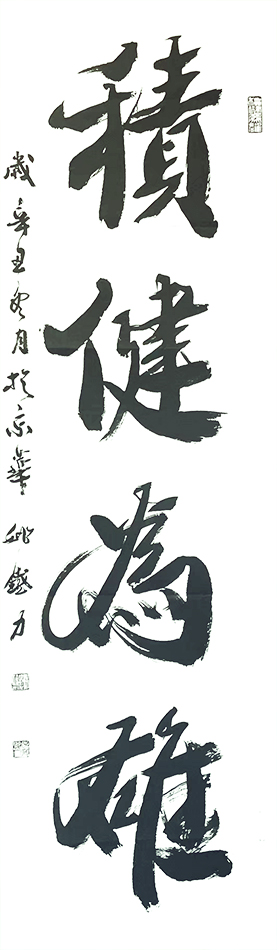 積健為雄
歲辛丑冬月於京華 姚鐵力